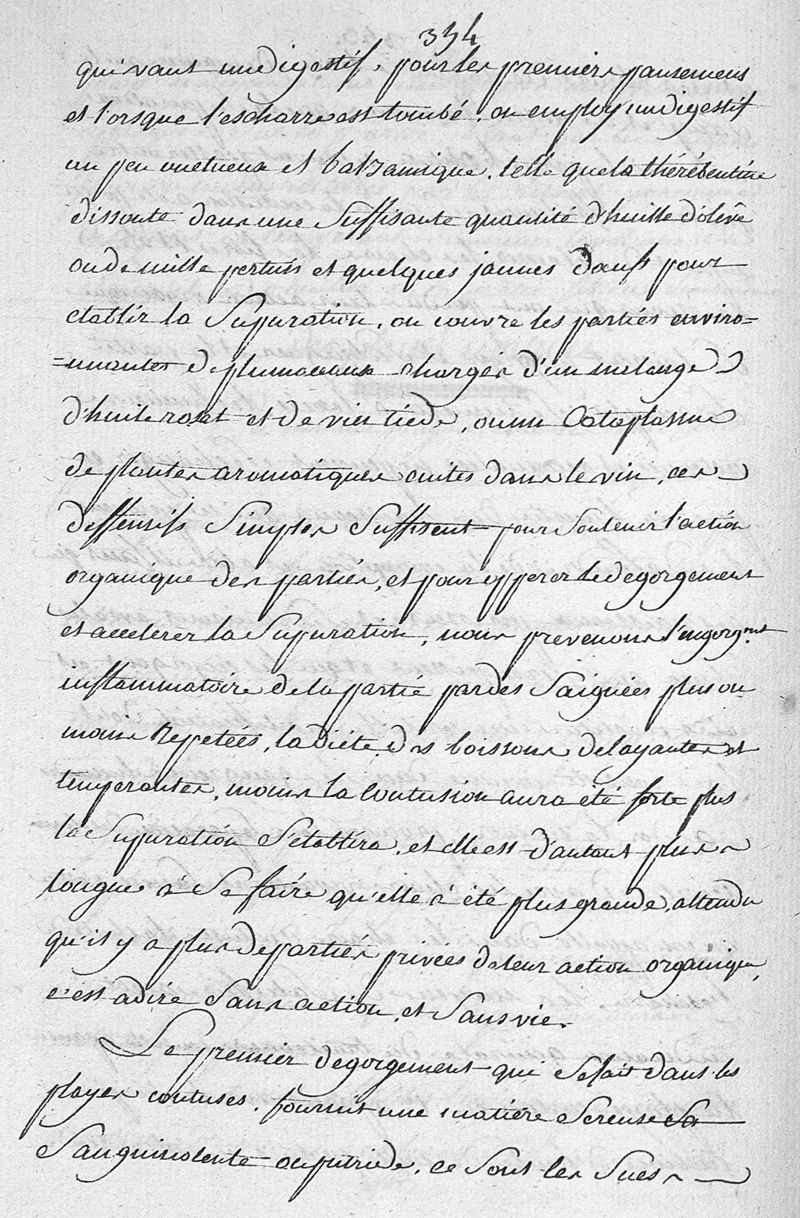 334
qui vaut un digestif, pour les premiers pansemens
et lorsque l'escharre est tombé, on employ un digestif
un peu onctueux et balzamique, telle que la thérébentine
dissoute dans une suffisante quantité d'huille d'olive
ou de mille pertuis et quelques jaunes d'œufs pour
etablir la supuration, on couvre les parties enviro=
=nnantes de plumaceaux chargés d'un mélange
d'huile rosat et de vin tiède, ou un cataplasme
de plantes aromatiques cuites dans le vin, ces
deffensifs simples suffisent pour soutenir l'action
organique des parties, et pour opperer le degorgement
et accelerer la supuration, nous prevenons l'engorgmt
inflammatoire de la partie par des saignées plus ou
moins repetées, la diéte, des boissons delayantes et
temperantes, moins la contusion aura été forte plus
la supuration s'etablira, et elle est d'autant plus
longue à se faire qu'elle à été plus grande, attendu
qu'il y a plus de parties privées de leur action organique,
c'est adire sans action, et sans vie.
Le premier degorgement qui se fait dans les
playes contuses, fournit une matière sereuse
sanguinolente ou putride, ce sont les sucs